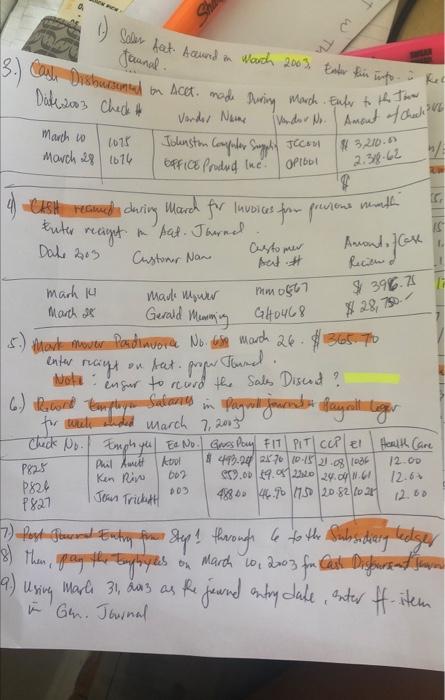 1.) Sales Act. Accured on March 2003. Enter this info. in
Journal.
3.) Cash Disbursement on Acct. made During March. Enter to the Jour
Date 2003 Check # Vendor Name Vendor No. Amount of Check
March 10 1075 Johnston Computer Supply JCC001 $ 3,210.00
March 28 1076 OFFICE Product Inc. OP1001 2,318.62
$
4) CASH received during March for Invoices from previous month
Enter receipt in Act. Journal.
Date 2003 Customer Name Customer Acct # Amount of Cash Received
March 14 Made Mower MM0567 $ 396.75
March 28 Gerald GH0468 $ 28,750.-
5.) Mark mover Paid Invoice No. March 26. $ 365.70
enter receipt on Act. proper Journal.
Note: ensur to record the Sales Discont?
6.) Record Employee Salaries in Payroll Journal & Payroll Leger
for week ended March 7, 2003
Check No. Employee Ee No. Gross Pay FIT PIT CCP EI Health Care
P825 Paul K001 $ 493.24 25.70 10.15 21.08 1036 12.00
P826 Ken Rivo 002 553.00 59.05 2220 24.04 11.61 12.00
P827 Jean Trickett 003 488.00 46.90 1750 20.82 10.25 12.00
7) Post Journal Entry from Step 1 through 6 to the Subsidiary ledger
8) Then, pay the Employees on March 10, 2003 for Cash Disbursement Journ
9.) Using March 31, 2003 as the journal entry date, enter ff. item
in Gen. Journal